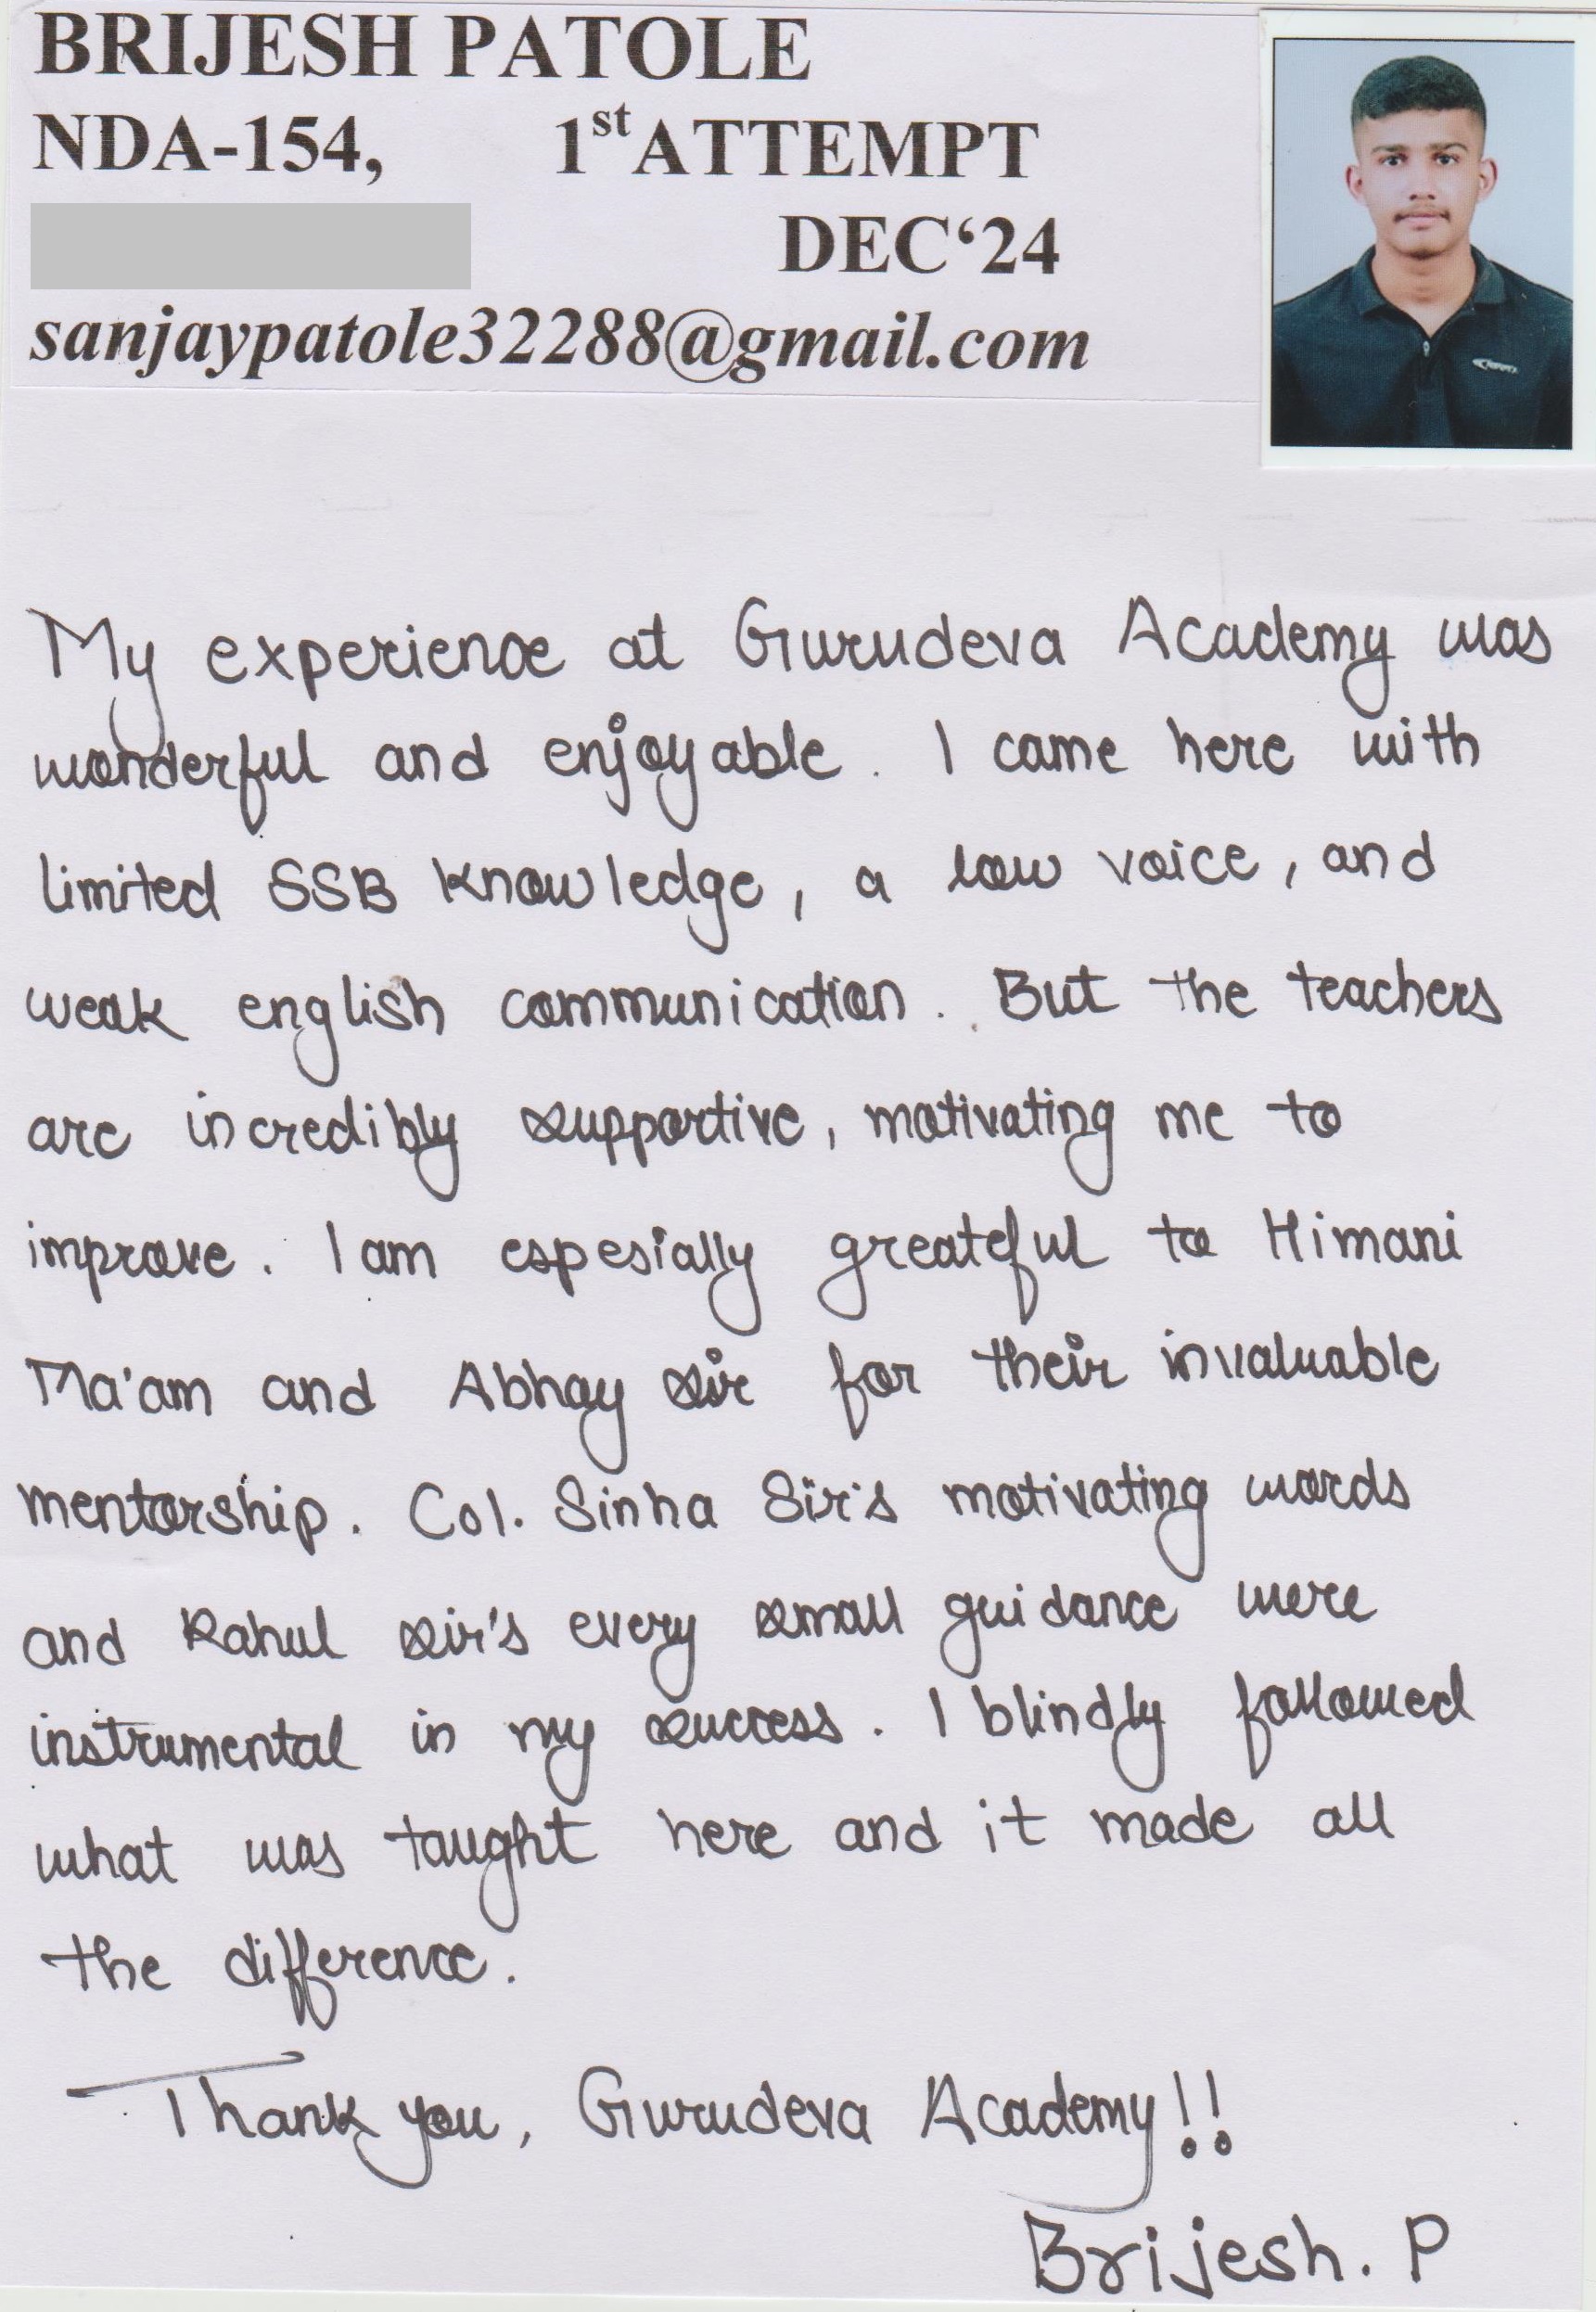 BRIJESH PATOLE
NDA-154, 1st ATTEMPT
DEC‘24
sanjaypatole32288@gmail.com
My experience at Gurudeva Academy was
wonderful and enjoyable. I came here with
limited SSB knowledge, a low voice, and
weak english communication. But the teachers
are incredibly supportive, motivating me to
improve. I am espesially greateful to Himani
Ma'am and Abhay sir for their invaluable
mentorship. Col. Sinha Sir's motivating words
and Rahul sir's every small guidance were
instrumental in my success. I blindly followed
what was taught here and it made all
the difference.
Thank you, Gurudeva Academy!!
Brijesh. P